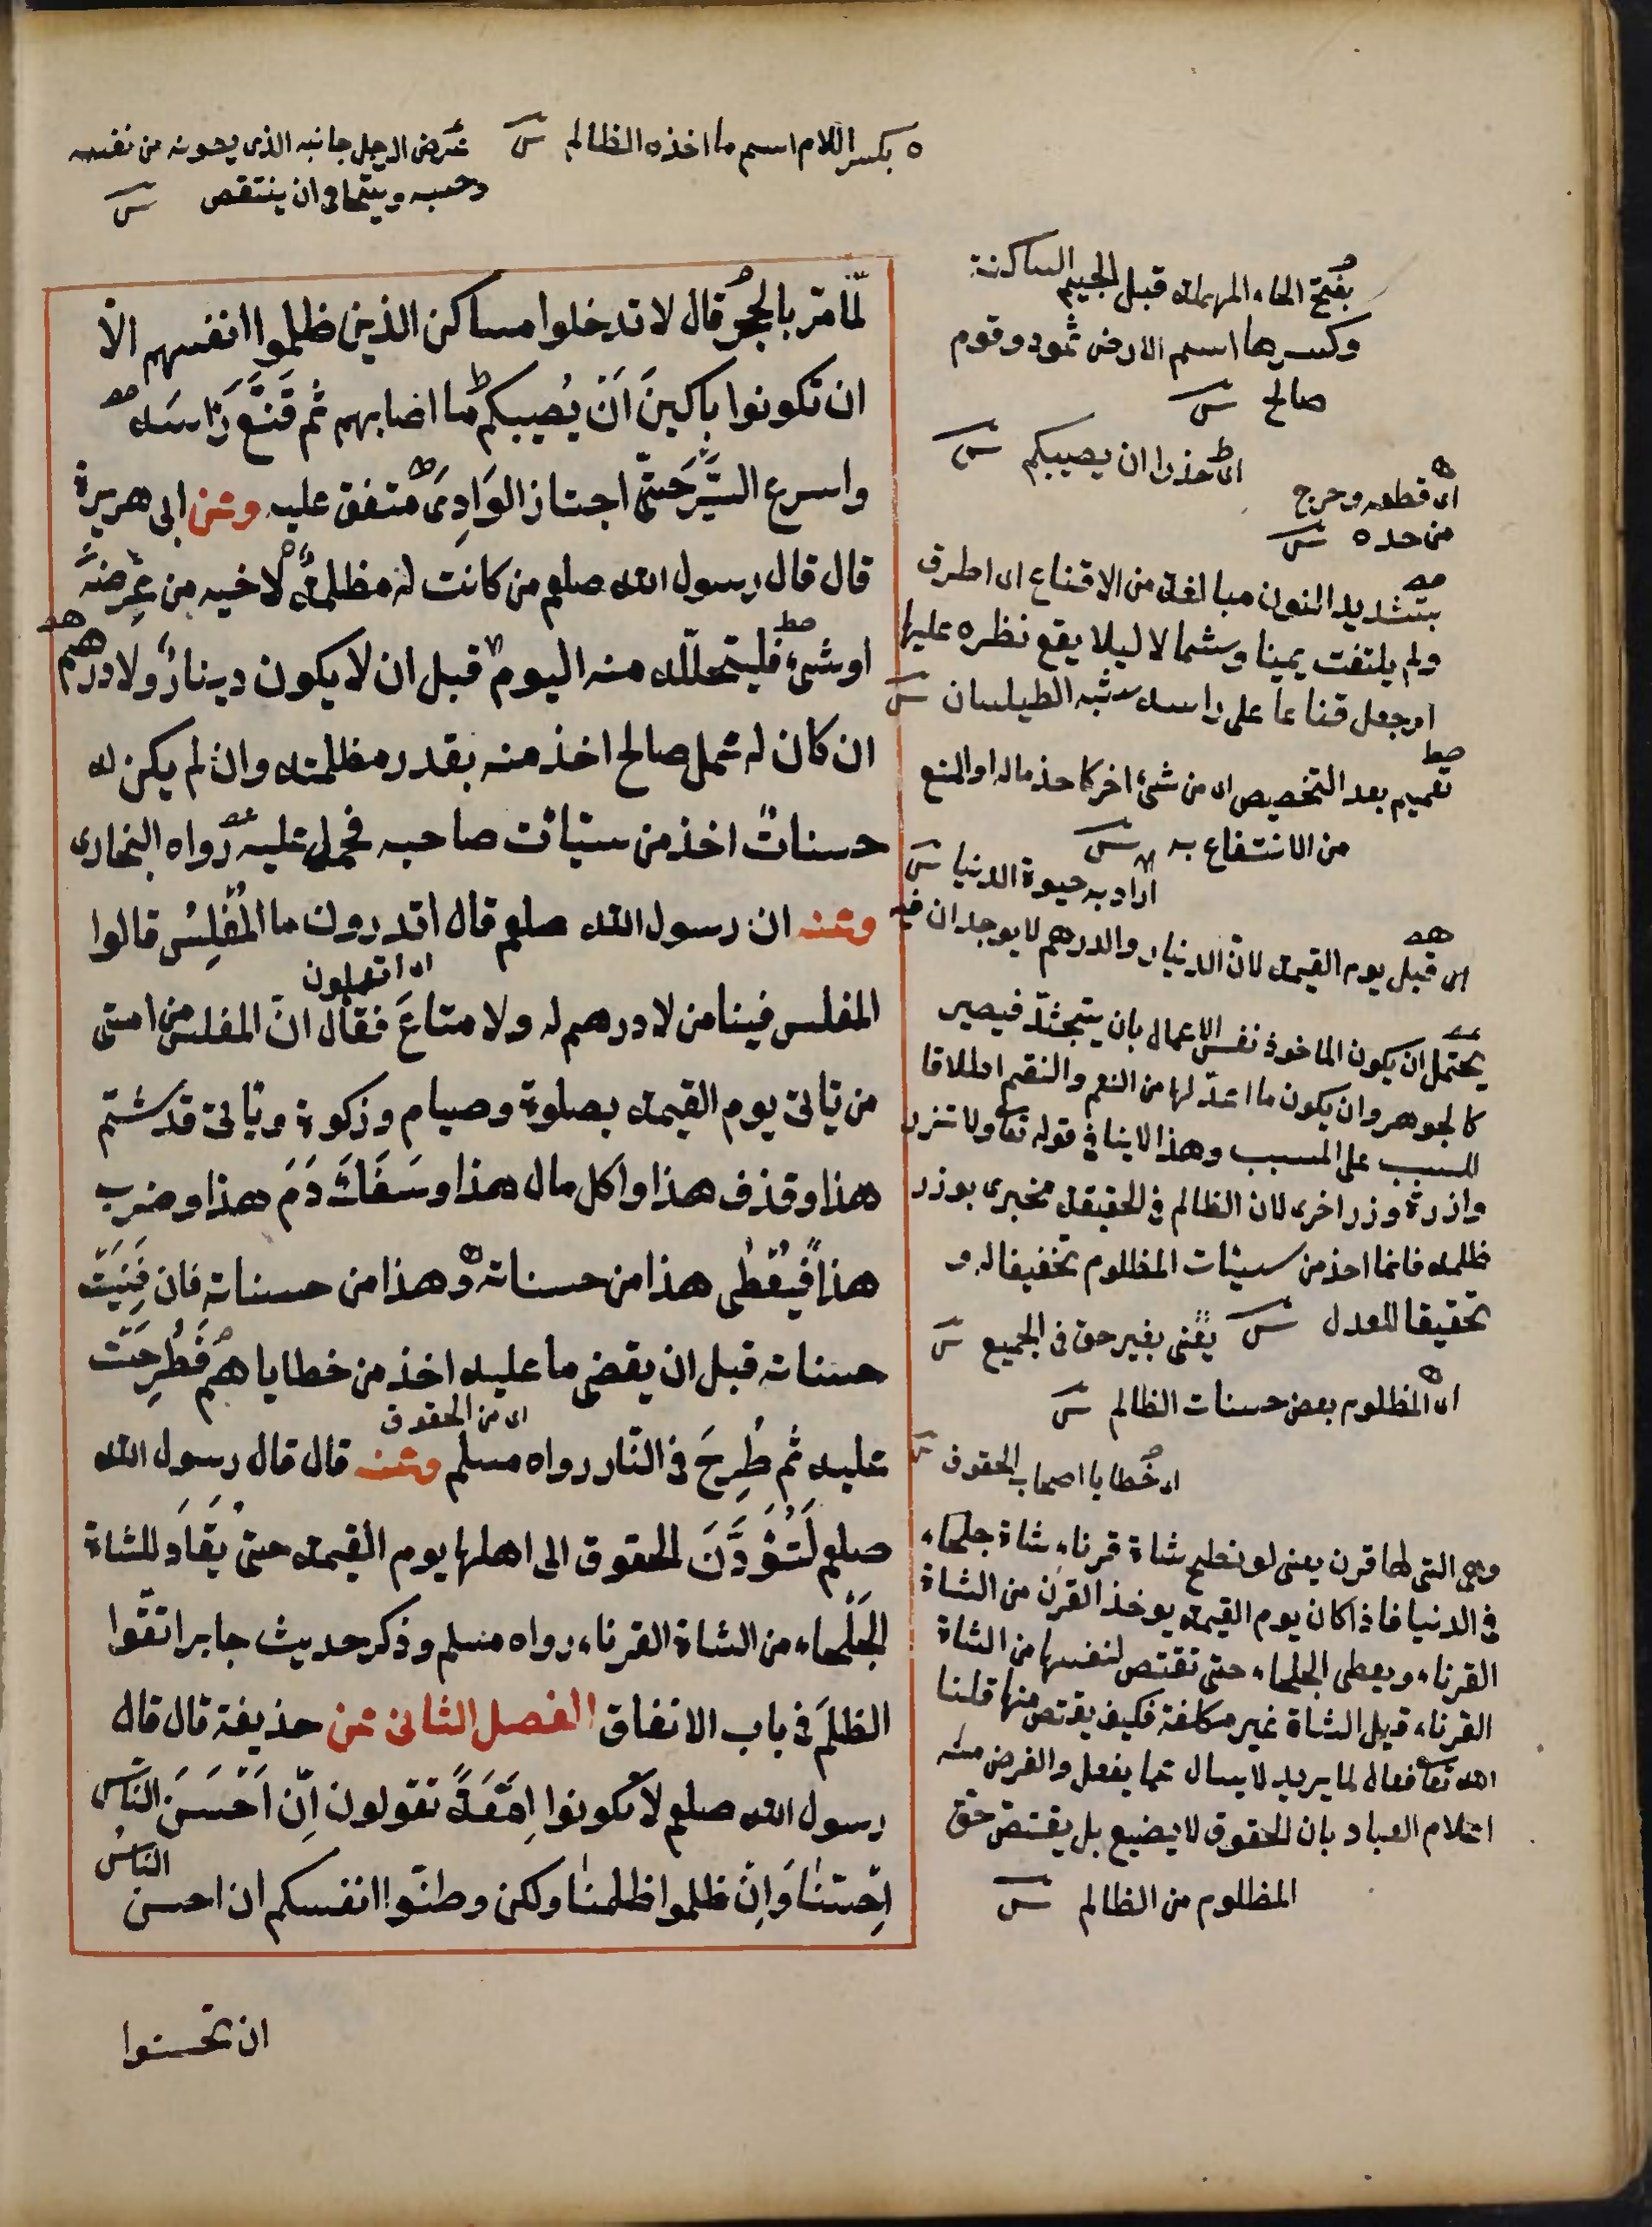 بكسر اللام اسم ما اخذه الظالم
عرض الرجل جانبه الذى يصونه من نفسه
وحسبه ويتحامى ان ينتقص
لمّا مرّ بالحِجر قال لا تدخلوا مساكن الذين ظلموا انفسهم الاّ
ان تكونوا باكينَ اَنْ يُصيبكم ما اصابهم ثم قَنَّعَ رَاسَه
واسرع السَّيرَ حَتّى اجتاز الوَادِىَ متفق عليه وعن ابى هريرة
قال قال رسول الله صلعم من كانت له مظلمة لاخيه من عِرضه
او شئ فليتحلّله منه اليوم قبل ان لا يكون دينار ولا درهم
ان كان له عمل صالح اخذ منه بقدر مظلمته وان لم يكن له
حسنات اخذ من سيّاٰت صاحبه فحمل عليه رواه البخارى
وعنه ان رسول الله صلعم قال اتدرون ما المُفلِسُ قالوا
اى اتعلمون
المفلس فينا من لا درهم له ولا متاعَ فقال انّ المفلس من امتى
من ياتى يوم القيمة بصلوة وصيام وزكوة وياتى قد شتم
هذا وقذف هذا واكل مال هذا وسَفَكَ دَمَ هذا وضرب
هذا فيُعْطٰى هذا من حسناته وهذا من حسناته فان فَنِيَتْ
حسناته قبل ان يقضى ما عليه اخذ من خطاياهم فَطُرِحَت
اى من الحقوق
عليه ثم طُرِحَ فى النّار رواه مسلم وعنه قال قال رسول الله
صلعم لَتُؤَدَّنَ الحقوق الى اهلها يوم القيمة حتى يُقَادَ للشاة
الجَلْحاء من الشاة القرناء رواه مسلم وذكر حديث جابر اتقوا
الظلمَ فى باب الانفاق الفصل الثانى عن حذيفة قال قال
رسول الله صلعم لا تكونوا اِمَّعَةً تقولون اِنْ اَحْسَنَ النّاس
الناسُ
اَحسَنّا وَاِنْ ظلموا ظلمنا ولكن وطنّوا انفسكم ان احسن
ان تحسنوا
بفتح الحاء المهملة قبل الجيم الساكنة
وكسرها اسم الارض ثمود وقوم
صالح
اى حذرا ان يصيبكم
اى قطعه وخرج
من حده
بتشديد النون مبالغة من الاقناع اى اطرق
ولم يلتفت يمينا وشمالا ليلا يقع نظره عليها
او جعل قناعا على راسه شبه الطيلسان
تعميم بعد التخصيص اى من شئ اخر كاخذ ماله او المنع
من الانتفاع به
اراد به حيوة الدنيا
اى قبل يوم القيمة لان الدينار والدرهم لا يوجدان فيه
يحتمل ان يكون الماخوذ نفس الاعمال بان يتجسّد فيصير
كالجوهر وان يكون ما اعدّ لها من النعم والنقم اطلاقا
للسبب على المسبب وهذا لا ينافى قوله تعا ولا تزر
وازرة وزر اخرى لان الظالم فى الحقيقة مجزى بوزر
ظلمه فانما اخذ من سيئات المظلوم تخفيفا له و
تحقيقا للعدل
يعنى بغير حق فى الجميع
اى المظلوم بعض حسنات الظالم
اى خطايا اصحاب الحقوق
وهى التى لها قرن يعنى لو نطح شاة قرناء شاة جلحاء
فى الدنيا فاذا كان يوم القيمة يوخذ القرن من الشاة
القرناء ويعطى الجلحاء حتى تقتص لنفسها من الشاة
القرناء قيل الشاة غير مكلفة فكيف يقتص منها قلنا
الله تعا فعال لما يريد لا يسال عما يفعل والغرض منه
اعلام العباد بان الحقوق لا يضيع بل يقتص حق
المظلوم من الظالم